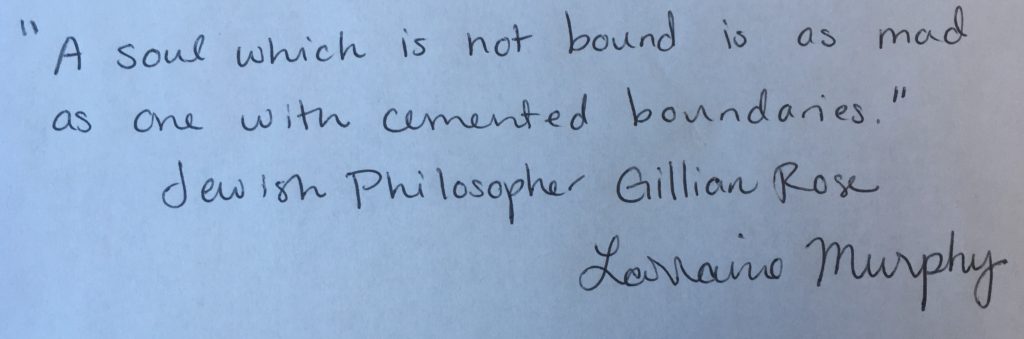 "A soul which is not bound is as mad
as one with cemented boundaries."
Jewish Philosopher Gillian Rose
Lorraine Murphy